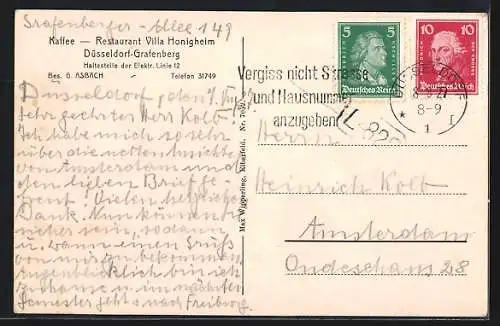 Grafenberger-Allee 149
Kaffee — Restaurant Villa Honigheim
Düsseldorf-Grafenberg
Haltestelle der Elektr. Linie 12
Bes. G. ASBACH Telefon 31749
Düsseldorf, den
Sehr geehrter Herr Kolb!
Ich habe mich so sehr
über die netten Ansichten
von Amsterdam und
den lieben Brief ge-
freut! Vielen herzlichen
Dank. Nun können Sie
sicher sein, sodann
u. wann einen Gruß
von mir zu bekommen.
Augenblicklich bin ich
zuhause u. im nächsten
Semester geht's nach Freiburg.
Max Wipperling, Elberfeld, Nr.
5 5
Deutsches Reich
10 10
Deutsches Reich
Vergiss nicht Strasse
und Hausnummer
anzugeben!
DÜSSELDORF
8-9
* 1 I
Herrn
Heinrich Kolb
Amsterdam
Ondeschans 28